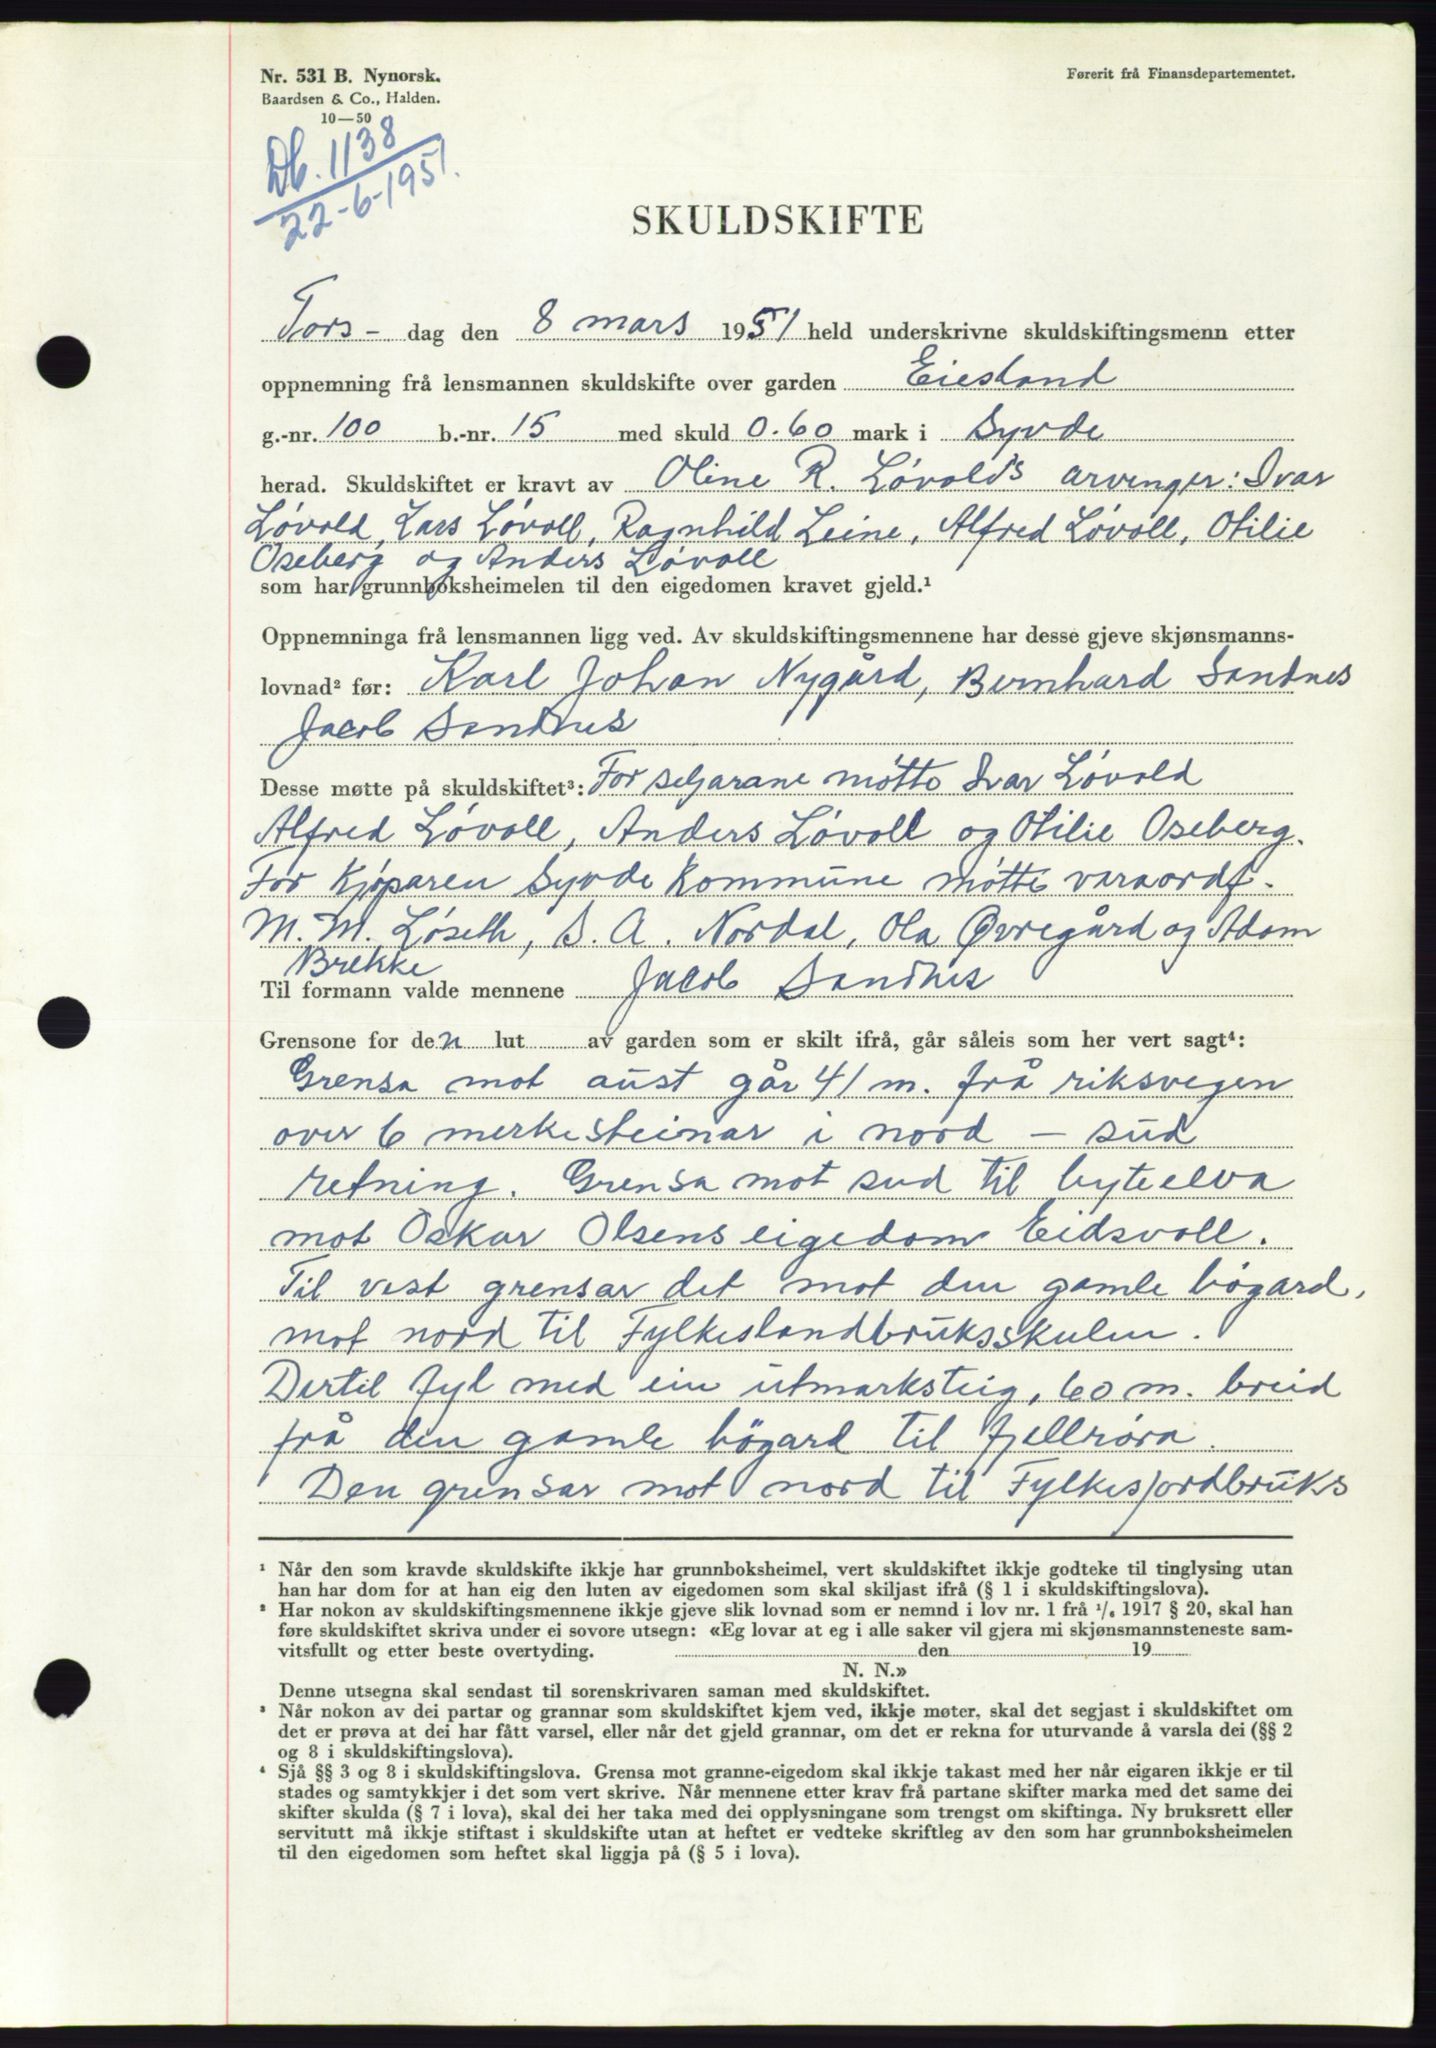 Nr. 531 B. Nynorsk.
Baardsen & Co., Halden.
10—50
Førerit frå Finansdepartementet.
Db. 1138
22-6-1951.
SKULDSKIFTE
Tors- dag den 8 mars 1951 held underskrivne skuldskiftingsmenn etter
oppnemning frå lensmannen skuldskifte over garden Eiesland
g.-nr. 100 b.-nr. 15 med skuld 0.60 mark i Syvde
herad. Skuldskiftet er kravt av Oline R. Løvolds arvinger: Ivar
Løvold, Lars Løvoll, Ragnhild Leine, Alfred Løvoll, Otilie
Oseberg og Anders Løvoll
som har grunnboksheimelen til den eigedomen kravet gjeld.¹
Oppnemninga frå lensmannen ligg ved. Av skuldskiftingsmennene har desse gjeve skjønsmanns-
lovnad² før: Karl Johan Nygård, Bernhard Sandnes
Jacob Sandnes
Desse møtte på skuldskiftet³: For seljarane møtte Ivar Løvold
Alfred Løvoll, Anders Løvoll og Otilie Oseberg.
For Kjøparen Syvde Kommune møtte varaordf.
M. M. Løseth, S. A. Nordal, Ola Øvregård og Adam
Brekke
Til formann valde mennene Jacob Sandnes
Grensone for den lut av garden som er skilt ifrå, går såleis som her vert sagt⁴:
Grensa mot aust går 41 m. frå riksvegen
over 6 merkesteinar i nord – sud
retning. Grensa mot sud til byteelva
mot Oskar Olsens eigedom Eidsvoll.
Til vest grensar det mot den gamle bögard,
mot nord til Fylkeslandbruksskulen.
Dertil fyl med ein utmarksteig, 60 m. breid
frå den gamle bögard til fjellrøra.
Den grensar mot nord til Fylkesjordbruks
¹ Når den som kravde skuldskifte ikkje har grunnboksheimel, vert skuldskiftet ikkje godteke til tinglysing utan
han har dom for at han eig den luten av eigedomen som skal skiljast ifrå (§ 1 i skuldskiftingslova).
² Har nokon av skuldskiftingsmennene ikkje gjeve slik lovnad som er nemnd i lov nr. 1 frå ¹/₆ 1917 § 20, skal han
føre skuldskiftet skriva under ei sovore utsegn: «Eg lovar at eg i alle saker vil gjera mi skjønsmannsteneste sam-
vitsfullt og etter beste overtyding. den 19
N. N.»
Denne utsegna skal sendast til sorenskrivaren saman med skuldskiftet.
³ Når nokon av dei partar og grannar som skuldskiftet kjem ved, ikkje møter, skal det segjast i skuldskiftet om
det er prøva at dei har fått varsel, eller når det gjeld grannar, om det er rekna for uturvande å varsla dei (§§ 2
og 8 i skuldskiftingslova).
⁴ Sjå §§ 3 og 8 i skuldskiftingslova. Grensa mot granne-eigedom skal ikkje takast med her når eigaren ikkje er til
stades og samtykkjer i det som vert skrive. Når mennene etter krav frå partane skifter marka med det same dei
skifter skulda (§ 7 i lova), skal dei her taka med dei opplysningane som trengst om skiftinga. Ny bruksrett eller
servitutt må ikkje stiftast i skuldskifte utan at heftet er vedteke skriftleg av den som har grunnboksheimelen
til den eigedomen som heftet skal liggja på (§ 5 i lova).